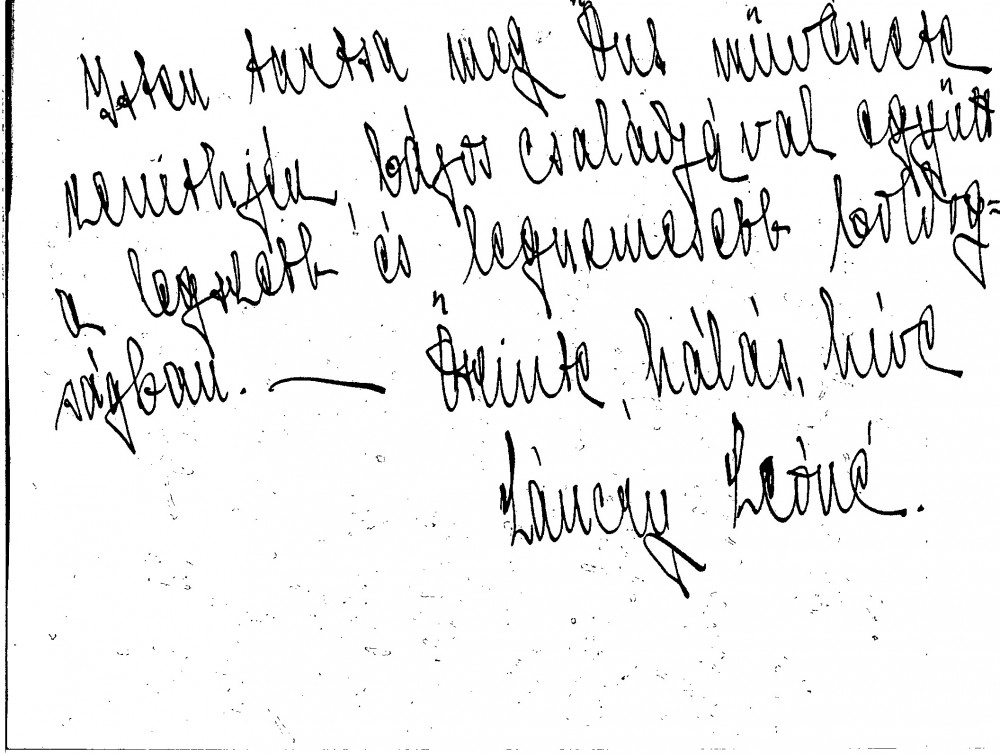 Isten tartsa meg Önt művészete
zenithjén, bájos családjával együtt
a legszebb és legnemesebb boldog=
ságban. — Őszinte, hálás, híve
Lánczy Leóné.